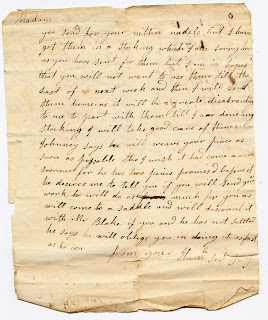 Madam
you send for your nitten nedels but I have
got them in a stocking which I am sorry for
as you have sent for them but I am in hopes
that you will not want to use them till the
last of next week and then I will send
them home as it will be a great disadvantage
to me to part with them till I am done my
stocking I will take good care of them
Johnney says he will weave your piece as
soon as possable this I wish it had come a week
sooner for he has two pieces promised before
he desires me to tell you if you will send your
work he will do as much for you as
will come to a saddle and will discount it
with Mr Blake if you and he has not setled
he says he will oblige you in doing it as fast
as he can
from your